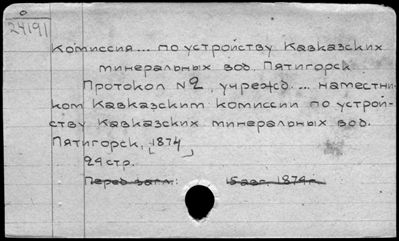 24191
Комиссия... по устройству Кавказских
минеральных вод. Пятигорск
Протокол №2, учрежд.... наместни-
ком Кавказским комиссии по устрой-
ству Кавказских минеральных вод.
Пятигорск, 1874
29 стр.
Перед загл.: 1874 г.